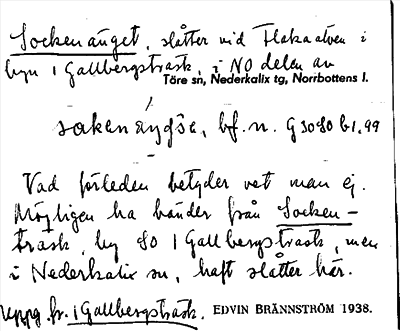 Sockenänget, slåtter vid Flakaälven i
byn 1 Gallbergsträsk, i NO delen av
Töre sn, Nederkalix tg, Norrbottens l.
bf. n. G 30 80 b1,99
Vad förleden betyder vet man ej.
Möjligen ha bönder från Socken-
träsk, by SO 1 Gallbergsträsk, men
i Nederkalix sn, haft slåtter här.
Uppg. fr. 1 Gallbergsträsk. EDVIN BRÄNNSTRÖM 1938.